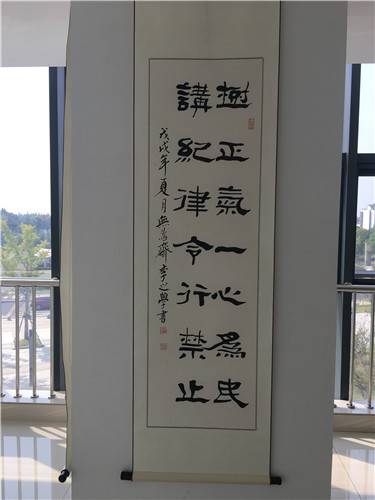 樹正氣一心為民
講紀律令行禁止
戊戌年夏月無為齋李心學書